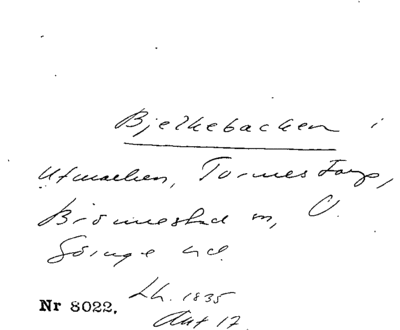 Bjelkebacken i
Utmarken, Tormestorp,
Brönnestad sn, V.
Göinge hd.
Lh. 1835
Akt 17.
Nr 8022.